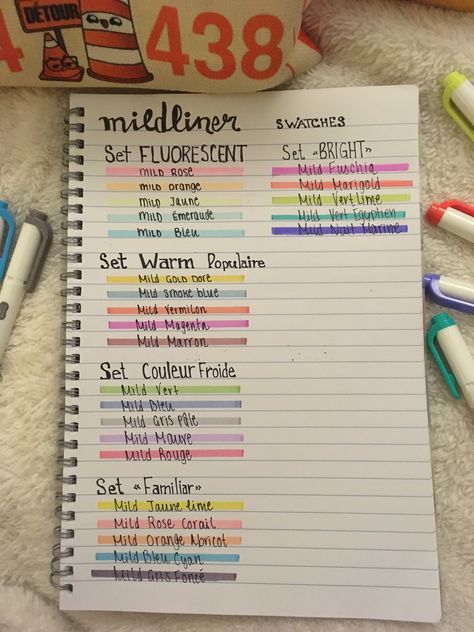 DÉTOUR
4
438
mildliner SWATCHES
Set FLUORESCENT
MILD ROSE
MILD ORANGE
MILD JAUNE
MILD ÉMERAUDE
MILD BLEU
Set «BRIGHT»
Mild Fuschia
Mild Marigold
Mild Vert Lime
Mild Vert Egyptien
Mild Nuit Marine
Set Warm Populaire
Mild GOLD DORÉ
Mild Smoke blue
Mild Vermilon
Mild Magenta
Mild Marron
Set Couleur Froide
Mild Vert
Mild Bleu
Mild Gris pâle
Mild Mauve
Mild Rouge
Set «Familiar»
Mild Jaune lime
Mild Rose Corail
Mild Orange Abricot
Mild Bleu Cyan
Mild Gris Foncé